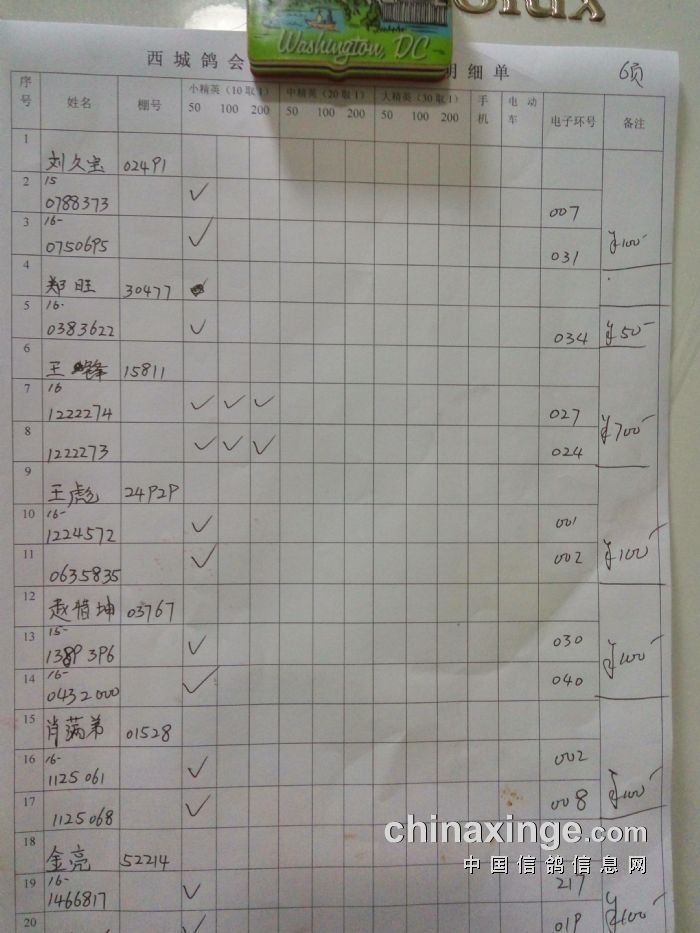 Washington, DC
西城鸽会 明细单 6页
序号 姓名 棚号 小精英（10取1） 中精英（20取1） 大精英（30取1） 手机 电动车 电子环号 备注
50 100 200 50 100 200 50 100 200
1 刘久宝 02491
2 15 0788373 ✓ 007
3 16- 0750695 ✓ 031 ¥100-
4 郑旺 30477
5 16- 0383622 ✓ 034 ¥50-
6 王锋 15811
7 16 1222274 ✓ ✓ ✓ 027
8 1222273 ✓ ✓ ✓ 024 ¥700-
9 王彪 24929
10 16- 1224572 ✓ 001
11 0635835 ✓ 002 ¥100-
12 赵惜坤 03767
13 15- 1389396 ✓ 030
14 16- 0432000 ✓ 040 ¥100-
15 肖满弟 01528
16 16- 1125061 ✓ 002
17 1125068 ✓ 008 ¥100-
18 金亮 52214
19 16- 1466817 ✓ 217
20 ✓ 019 ¥100-
chinaxinge.com
中国信鸽信息网